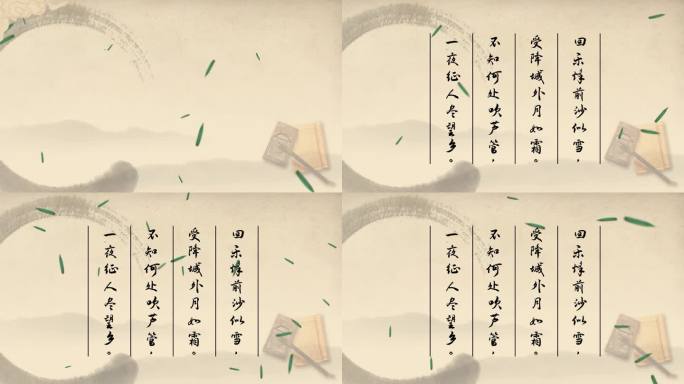 回乐烽前沙似雪，
受降城外月如霜。
不知何处吹芦管，
一夜征人尽望乡。
回乐烽前沙似雪，
受降城外月如霜。
不知何处吹芦管，
一夜征人尽望乡。
回乐烽前沙似雪，
受降城外月如霜。
不知何处吹芦管，
一夜征人尽望乡。